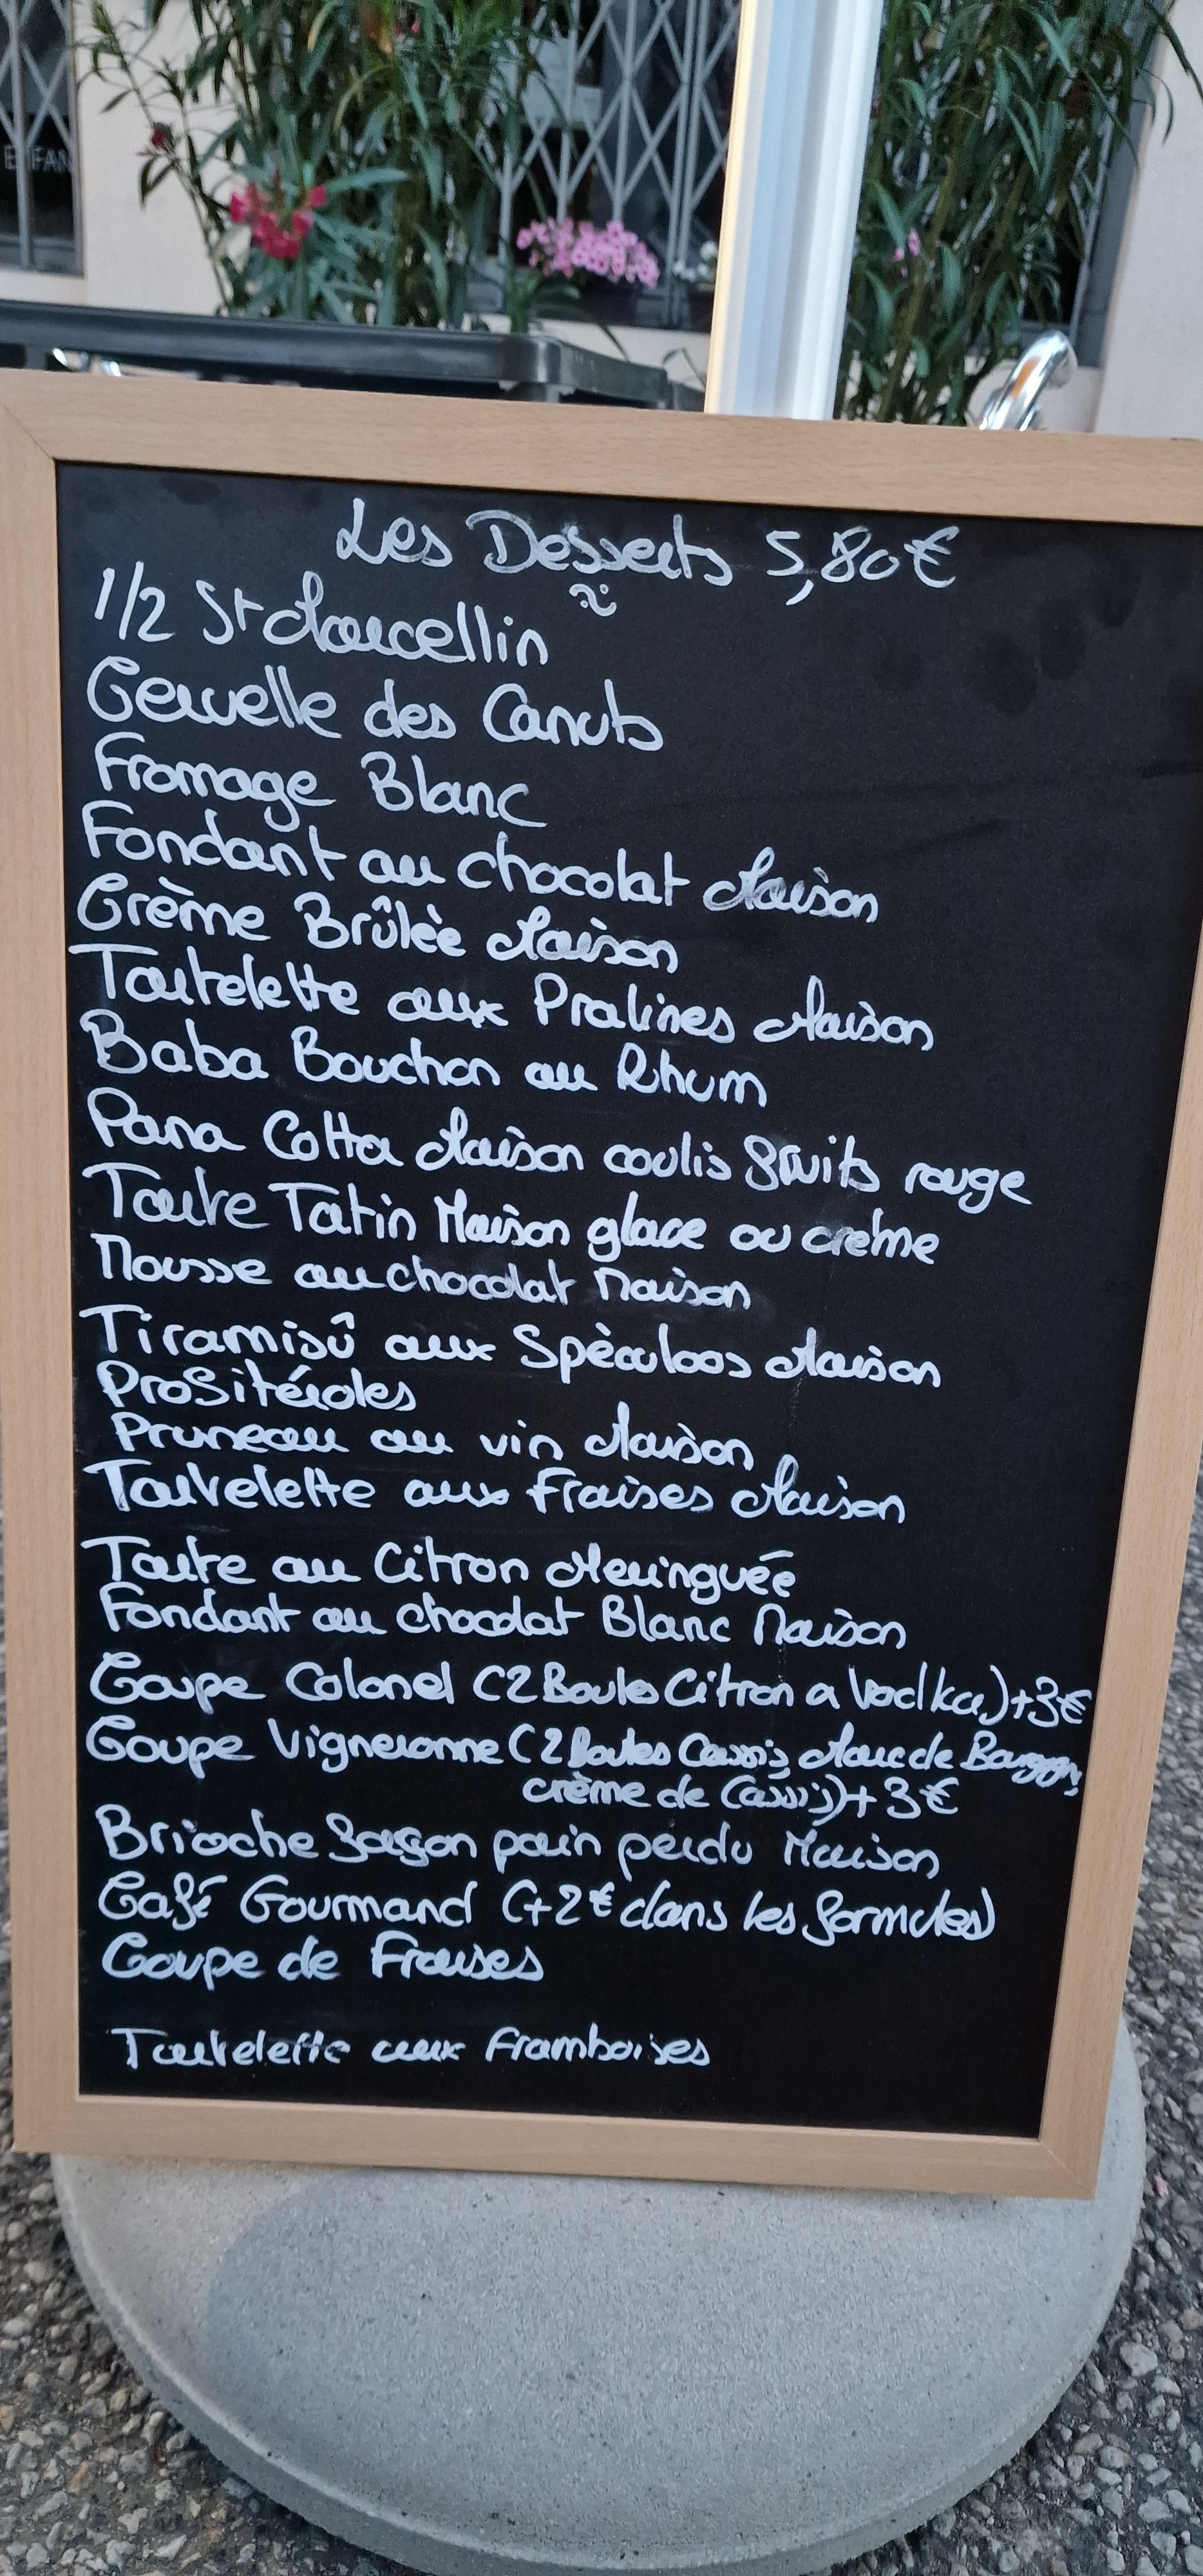 E FAN
Les Desserts 5,80€
1/2 St Marcellin
Cervelle des Canuts
Fromage Blanc
Fondant au chocolat Maison
Crème Brûlèe Maison
Tartelette aux Pralines Maison
Baba Bouchon au Rhum
Pana Cotta Maison coulis fruits rouge
Tarte Tatin Maison glace ou crème
Mousse au chocolat Maison
Tiramisû aux Spèculoos Maison
Profitéroles
Pruneau au vin Maison
Tartelette aux Fraises Maison
Tarte au Citron Meringuée
Fondant au chocolat Blanc Maison
Coupe Colonel (2 Boules Citron a Vodka)+3€
Coupe Vigneronne (2 Boules Cassis, Marc de
crème de Cassis)+3€
Brioche façon pain perdu Maison
Café Gourmand (+2€ dans les formules)
Coupe de Fraises
Tartelette aux framboises